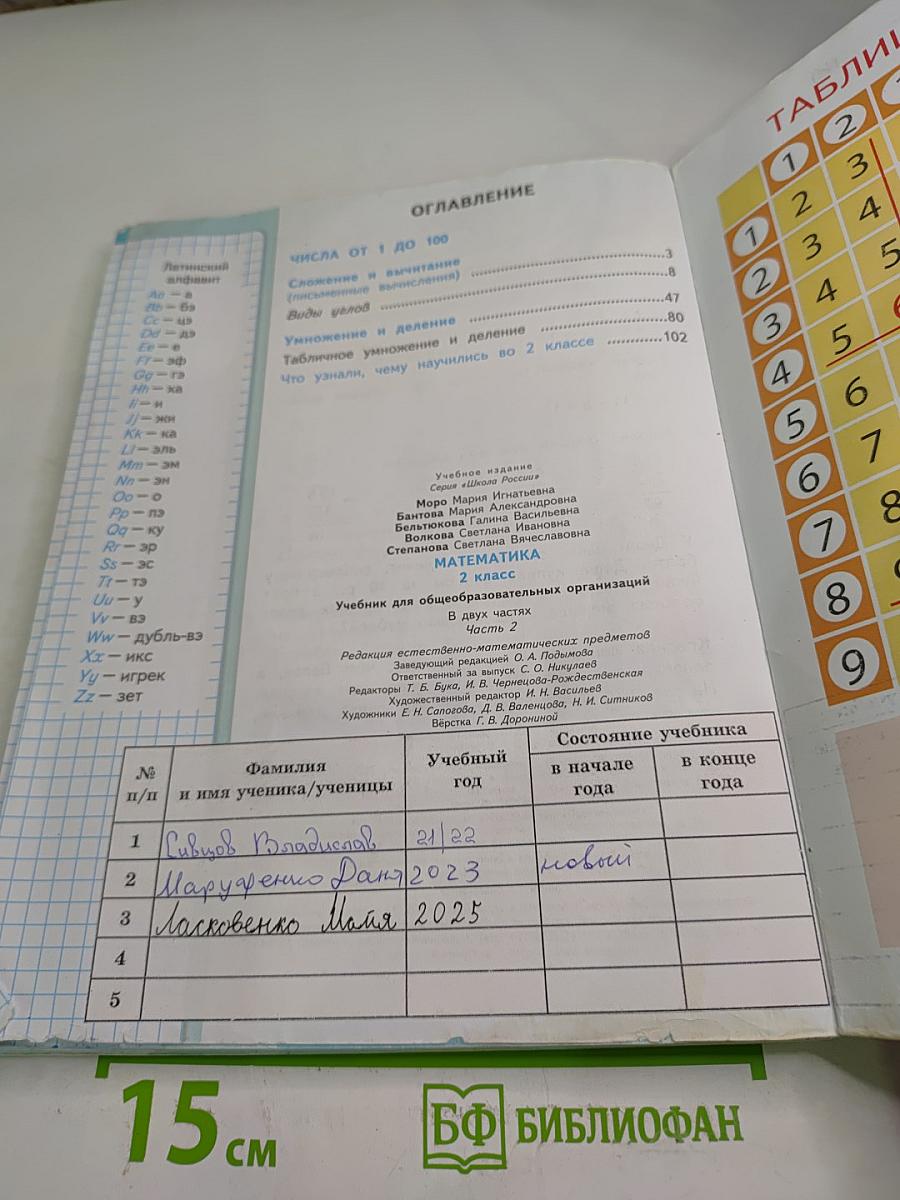 Латинский
алфавит
Aa — а
Bb — бэ
Cc — цэ
Dd — дэ
Ee — е
Ff — эф
Gg — гэ
Hh — ха
Ii — и
Jj — жи
Kk — ка
Ll — эль
Mm — эм
Nn — эн
Oo — о
Pp — пэ
Qq — ку
Rr — эр
Ss — эс
Tt — тэ
Uu — у
Vv — вэ
Ww — дубль-вэ
Xx — икс
Yy — игрек
Zz — зет
ОГЛАВЛЕНИЕ
ЧИСЛА ОТ 1 ДО 100
Сложение и вычитание
(письменные вычисления) ........ 3
Виды углов ........ 8
Умножение и деление ........ 47
Табличное умножение и деление ........ 80
Что узнали, чему научились во 2 классе ........ 102
Учебное издание
Серия «Школа России»
Моро Мария Игнатьевна
Бантова Мария Александровна
Бельтюкова Галина Васильевна
Волкова Светлана Ивановна
Степанова Светлана Вячеславовна
МАТЕМАТИКА
2 класс
Учебник для общеобразовательных организаций
В двух частях
Часть 2
Редакция естественно-математических предметов
Заведующий редакцией О. А. Подымова
Ответственный за выпуск С. О. Никулаев
Редакторы Т. Б. Бука, И. В. Чернецова-Рождественская
Художественный редактор И. Н. Васильев
Художники Е. Н. Сапогова, Д. В. Валенцова, Н. И. Ситников
Вёрстка Г. В. Дорониной
№ п/п Фамилия и имя ученика/ученицы Учебный год Состояние учебника в начале года в конце года
1 Сивцов Владислав 21/22
2 Маруфенко Дана 2023 новый
3 Ласковенко Майя 2025
4
5
1 2
1 2 3
2 3 4
3 4 5
4 5
5 6
6 7
7 8
8
9
15 см
БФ БИБЛИОФАН